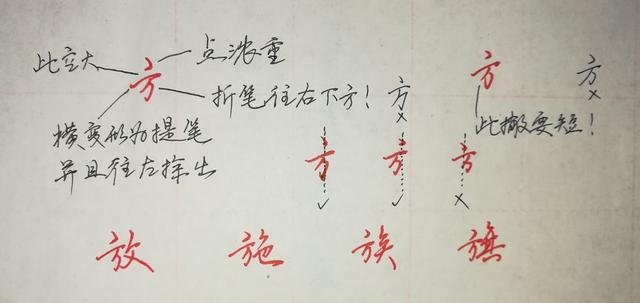 此空大
方
点浓重
折笔往右下方！
横变形为提笔
并且往左探出
方
方
此撇要短！
方
方 方 方
放 施 族 旗